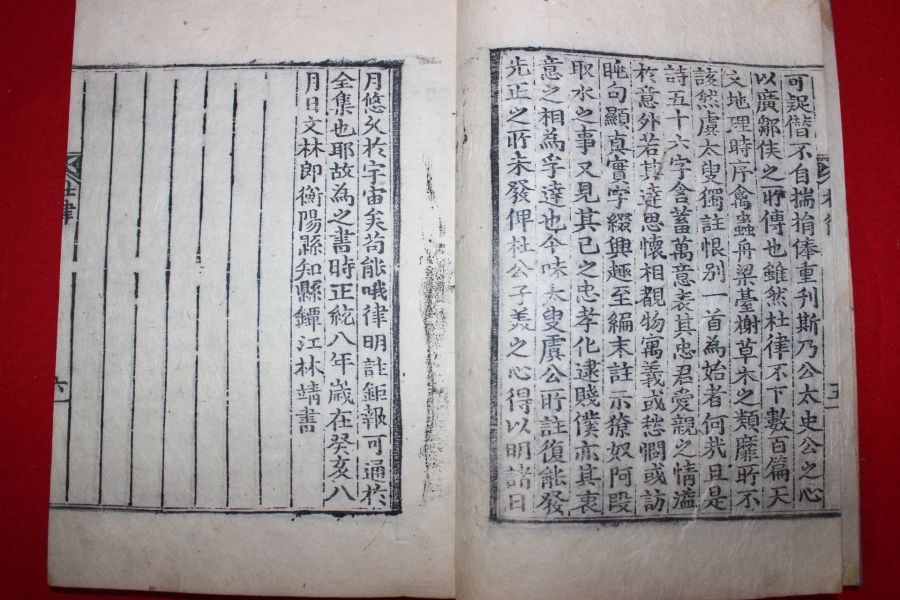 可誤偕不自揣捐俸重刊斯乃公太史公之心
以廣鄒侯之所傳也雖然杜律不下數百篇天
文地理時序禽蟲舟梁臺榭草木之類靡所不
該然虞太叟獨註恨別一首為始者何㢤且是
詩五十六字含蓄萬意表其忠君愛親之情溢
於意外若其達思懷相覩物寓義或愁憫或訪
眺句顯真實字綴興趣至編末註示獠奴阿段
取水之事又見其己之忠孝化逮賤僕亦其衷
意之相為孚達也今味太叟虞公所註復能發
先正之所未發俾杜公子美之心得以明諸日
五
月悠久於宇宙矣苟能哦律明註鉅報可通於
全集也耶故為之書時正統八年歲在癸亥八
月日文林郎衡陽縣知縣鐔江林靖書
杜律
六